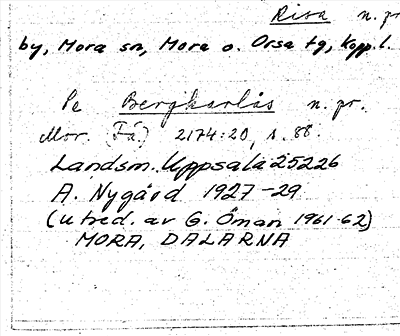 Risa n. pr.
by, Mora sn, Mora o. Orsa tg, Kopp. l.
Se Bergkarlås n. pr.
Mor. (Få.) 2174:20, s. 88.
Landsm. Uppsala 25226
A. Nygård 1927-29
(utred. av G. Öman 1961-62)
MORA, DALARNA